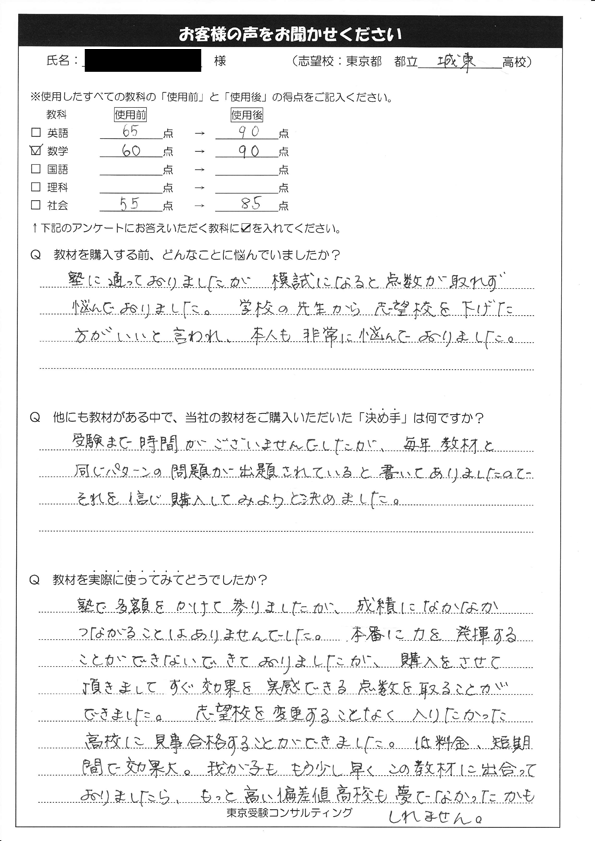 お客様の声をお聞かせください
氏名： 様 （志望校：東京都 都立 城東 高校）
※使用したすべての教科の「使用前」と「使用後」の得点をご記入ください。
教科 使用前 使用後
□ 英語 65 点 → 90 点
☑ 数学 60 点 → 90 点
□ 国語 点 → 点
□ 理科 点 → 点
□ 社会 55 点 → 85 点
↑下記のアンケートにお答えいただく教科に☑を入れてください。
Q 教材を購入する前、どんなことに悩んでいましたか？
塾に通っておりましたが 模試になると点数が取れず
悩んでおりました。 学校の先生から 志望校を下げた
方がいいと言われ、本人も非常に悩んでおりました。
Q 他にも教材がある中で、当社の教材をご購入いただいた「決め手」は何ですか？
受験まで時間がございませんでしたが、毎年教材と
同じパターンの問題が出題されていると書いてありましたので
それを信じ購入してみようと決めました。
Q 教材を実際に使ってみてどうでしたか？
塾で多額をかけて参りましたが、成績になかなか
つながることはありませんでした。 本番に力を発揮する
ことができないできておりましたが、購入をさせて
頂きましてすぐ効果を実感できる点数を取ることが
できました。 志望校を変更することなく入りたかった
高校に見事合格することができました。低料金、短期
間で効果大。我が子も もう少し早くこの教材に出合って
おりましたら、もっと高い偏差値高校も夢でなかったかも
しれません。
東京受験コンサルティング